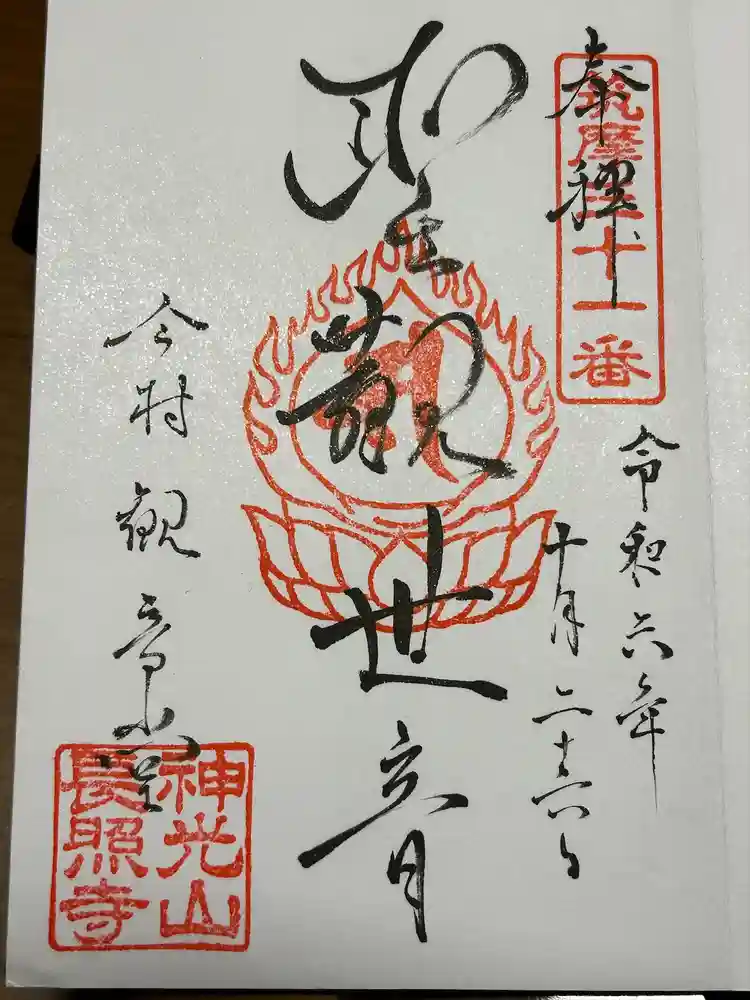 奉拝
筑摩
十一番
令和六年
十月二十六日
聖観世音
今村観音堂
神光山
長照寺